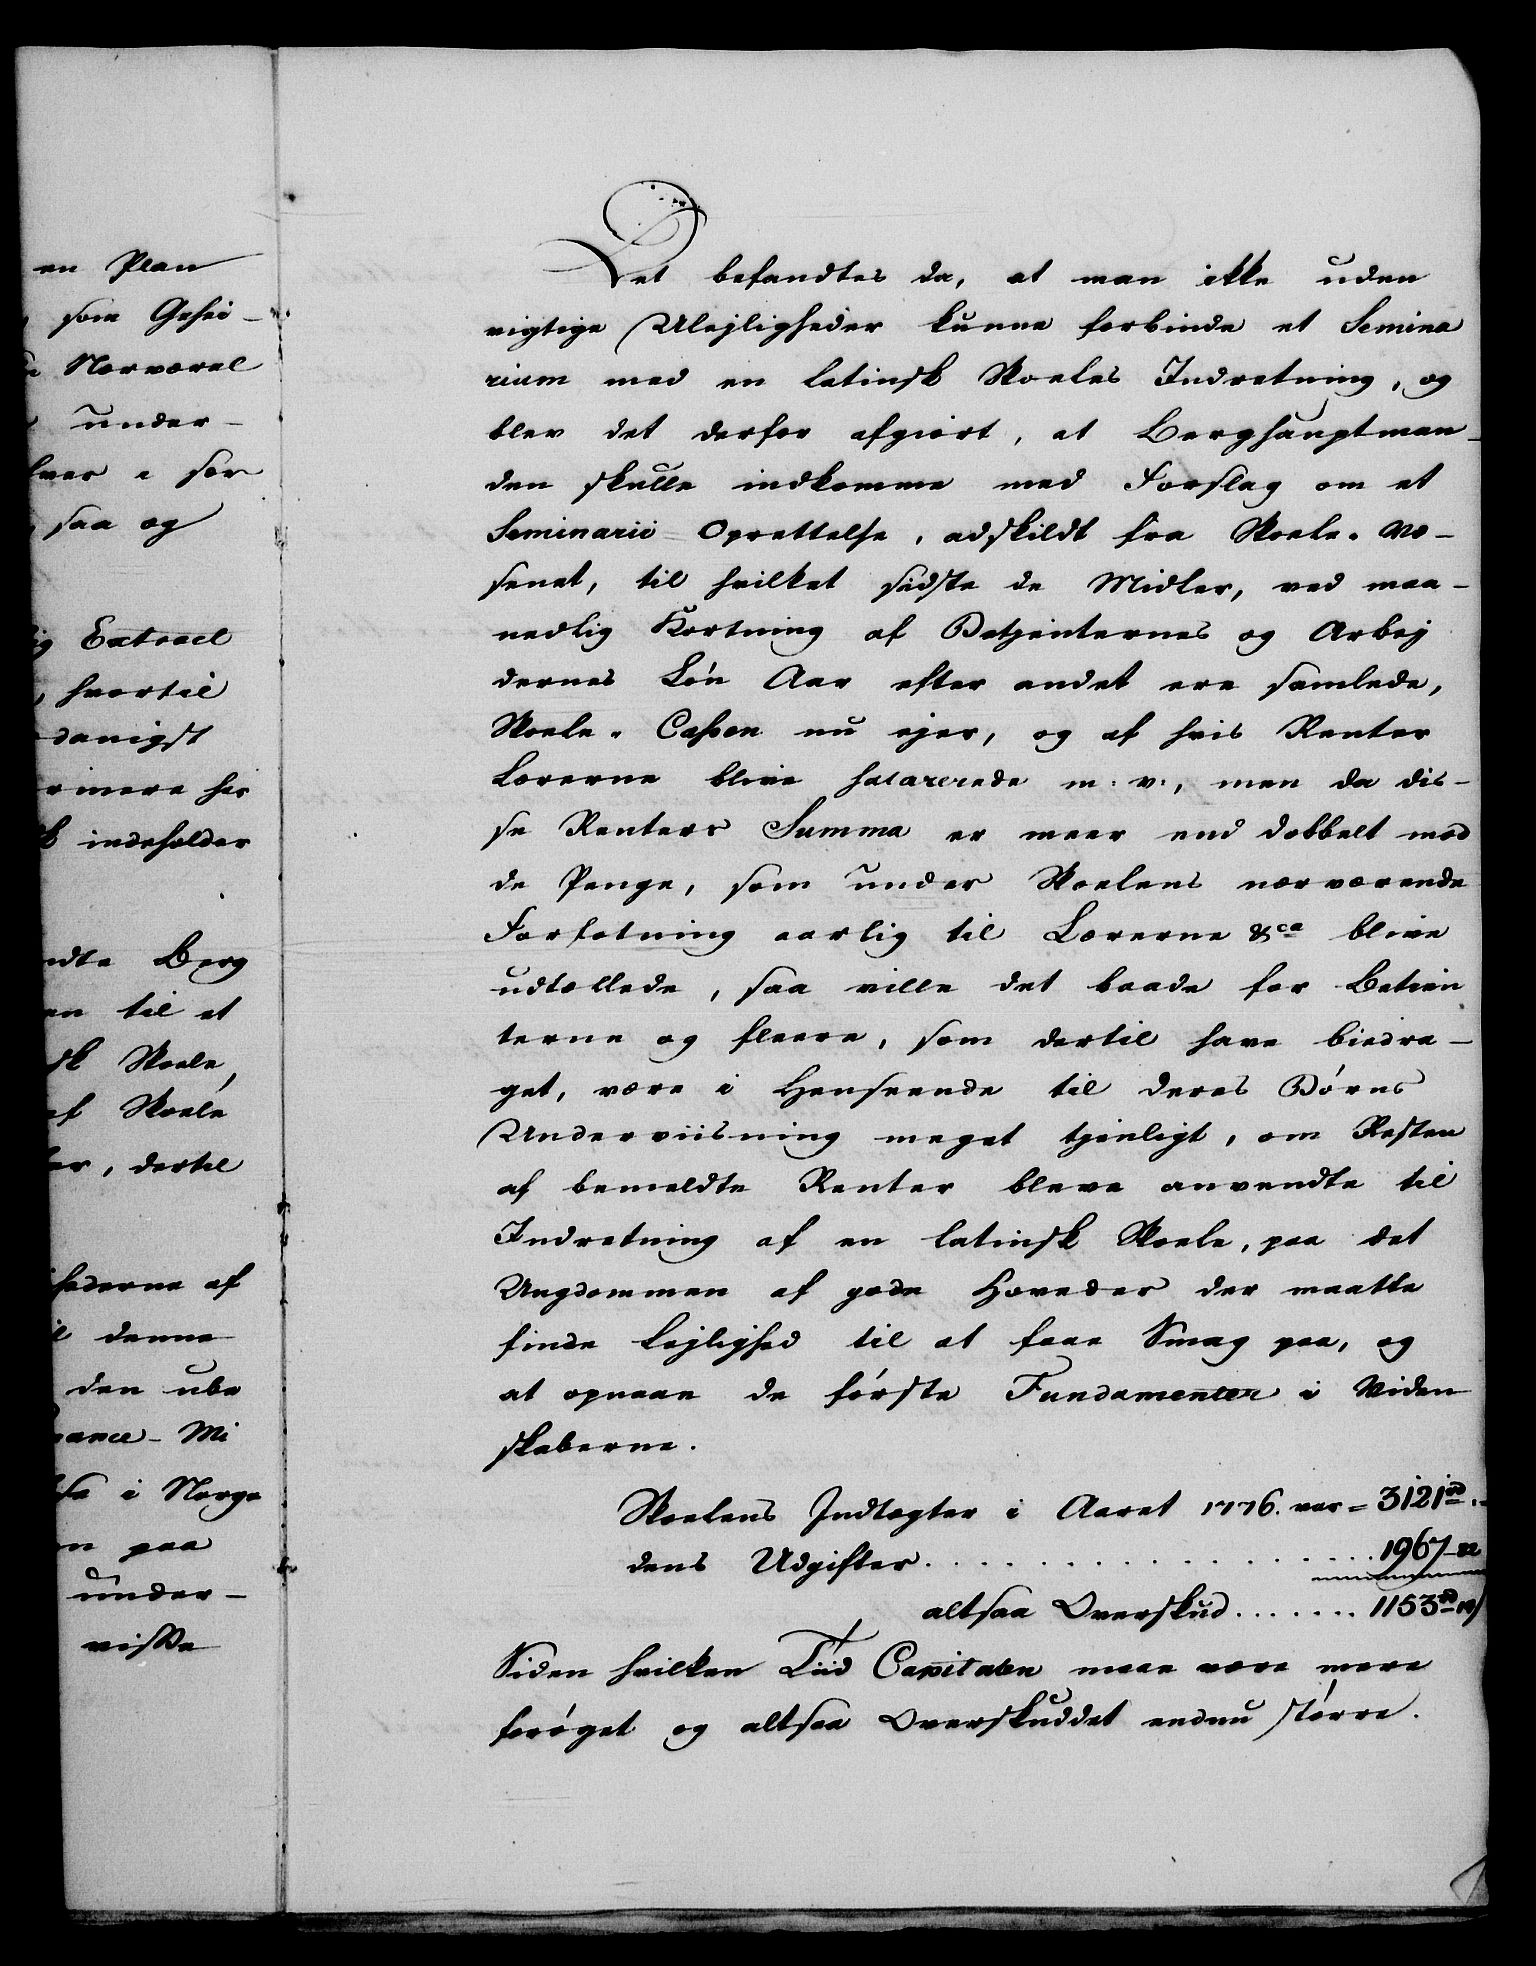 en Plan
som Gehei-
Nærværel
under-
lves i sær
saa og
ig Extract
, hvortil
danigst
rmere her
k indeholder
ndte Berg
en til et
sk Skoele,
af Skoele
er, dertil
hederne af
il denne
den ube
nance-Mi
se i Norge
n paa
under-
visse
Det befandtes da, at man ikke uden
vigtige Ulejligheder kunne forbinde et Semina
rium med en latinsk Skoeles Indretning, og
blev det derfor afgiort, at Berghauptman-
den skulle indkomme med Forslag om et
Seminarii Oprettelse, adskildt fra Skoele-Væ-
senet, til hvilket sidste de Midler, ved maa-
nedlig Kortning af Betjenternes og Arbej
dernes Løn Aar efter andet ere samlede,
Skoele-Cassen nu ejer, og af hvis Renter
Lærerne blive salarerede m: v:, men da dis-
se Renters Summa er meer end dobbelt mod
de Penge, som under Skoelens nærværende
Forfatning aarlig til Lærerne &ca blive
udtællede, saa ville det baade for Betien
terne og fleere, som dertil have bidra-
get, være i Henseende til deres Børns
Underviisning meget tjenligt, om Resten
af bemeldte Renter bleve anvendte til
Indretning af en latinsk Skoele, paa det
Ungdommen af gode Hoveder der maatte
finde Lejlighed til at faae Smag paa, og
at opnaae de første Fundamenter i Viden
skaberne.
Skoelens Indtægter i Aaret 1776. var = 3121rd.-
dens Udgifter. . . . . . . . . . . . . . . . . . 1967-82
altsaa Overskud. . . . . . . 1153rd 14s
Siden hvilken Tiid Capitalen maae være mere
forøget og altsaa Overskuddet endnu større.